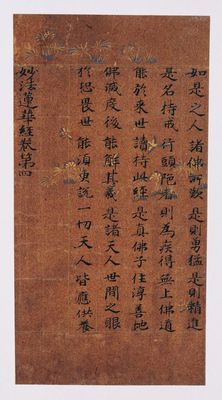 如是之人 諸佛所歎 是則勇猛 是則精進
是名持戒 行頭陁者 則為疾得 無上佛道
能於來世 讀持此經 是真佛子 住淳善地
佛滅度後 能解其義 是諸天人 世間之眼
於恐畏世 能須臾說 一切天人 皆應供養
妙法蓮華經卷第四